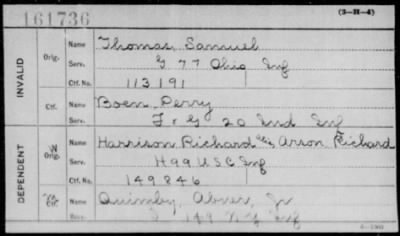 161736
(3-H-4)
INVALID
Orig.
Name Thomas, Samuel
Serv. G 77 Ohio Inf
Ctf. No. 113191
Ctf.
Name Boen, Perry
Serv. F & G 20 Ind Inf
DEPENDENT
W Orig.
Name Harrison Richard alias Arson Richard
Serv. H 99 U S C Inf
Ctf. No. 149846
Ctf.
Name Quimby, Abner, Jr
Serv. 149 N.Y. Inf